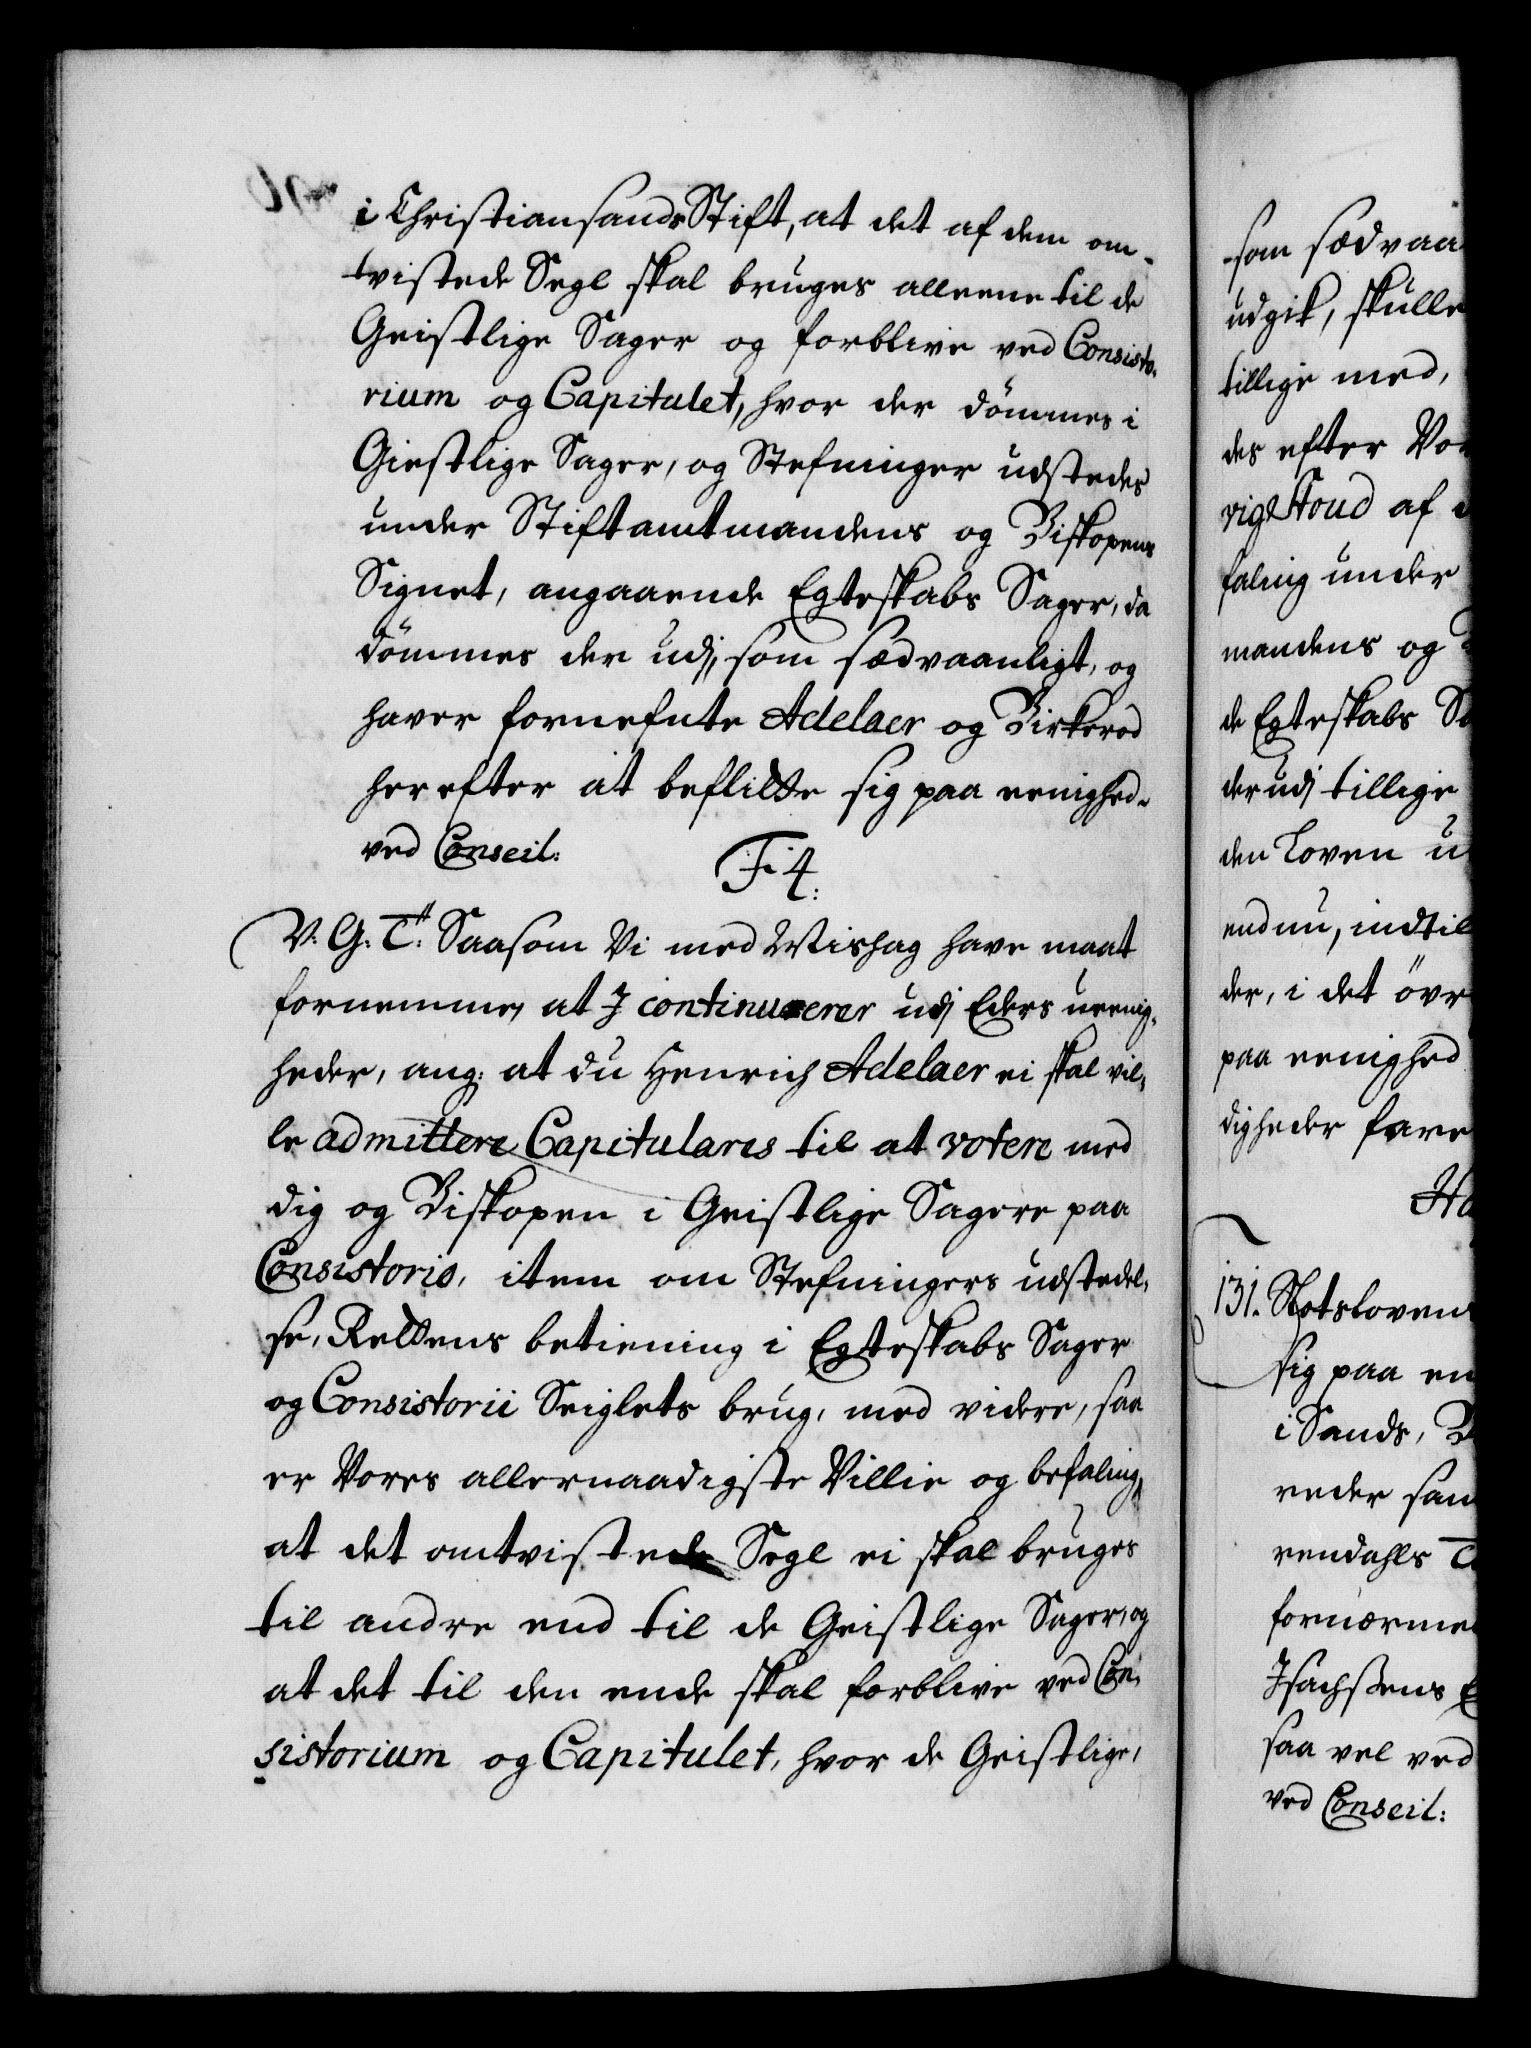 i Christiansands Stift, at det af dem om-
tvistede Segl skal bruges alleene til de
Geistlige Sager og forblive ved Consisto-
rium og Capitulet, hvor der dömmes i
Giestlige Sager, og Stefninger udstedes
under Stiftamtmandens og Biskopens
Signet, angaaende Egteskabs Sager, da
dömmes der udj, som sædvaanligt, og
haver fornefnte Adelaer og Birkerod
herefter at beflitte sig paa eenighed.
ved Conseil:
F: 4.
V: G: T: Saasom Vi med Mishag have maat
fornemme, at J continuerer udj Eders ueenig-
heder, ang: at du Henrich Adelaer ei skal vil-
le admittere Capitulares til at votere med
dig og Biskopen i Geistlige Sagere paa
Consistorio, item om Stefningers udstedel-
se, Rettens betiening i Egteskabs Sager
og Consistorii Seiglets brug, med videre, saa
er Vores allernaadigste Villie og befaling,
at det omtvistede Segl ei skal bruges
til andre end til de Geistlige Sager, og
at det til den ende skal forblive ved Con-
sistorium og Capitulet, hvor de Geistlige,
som sædvaa
udgik, skulle
tillige med,
des efter Vor
rigs Foud af
faling under
mandens og
de Egteskabs
der udj tillige
den Loven
endnu, indtil
der, i det övr
paa eenighed
digheder fare
131. Slotsloven
sig paa en
i Sands,
reder sam
rendahls
fornærme
Jsachsens
saa vel ved
ved Conseil: